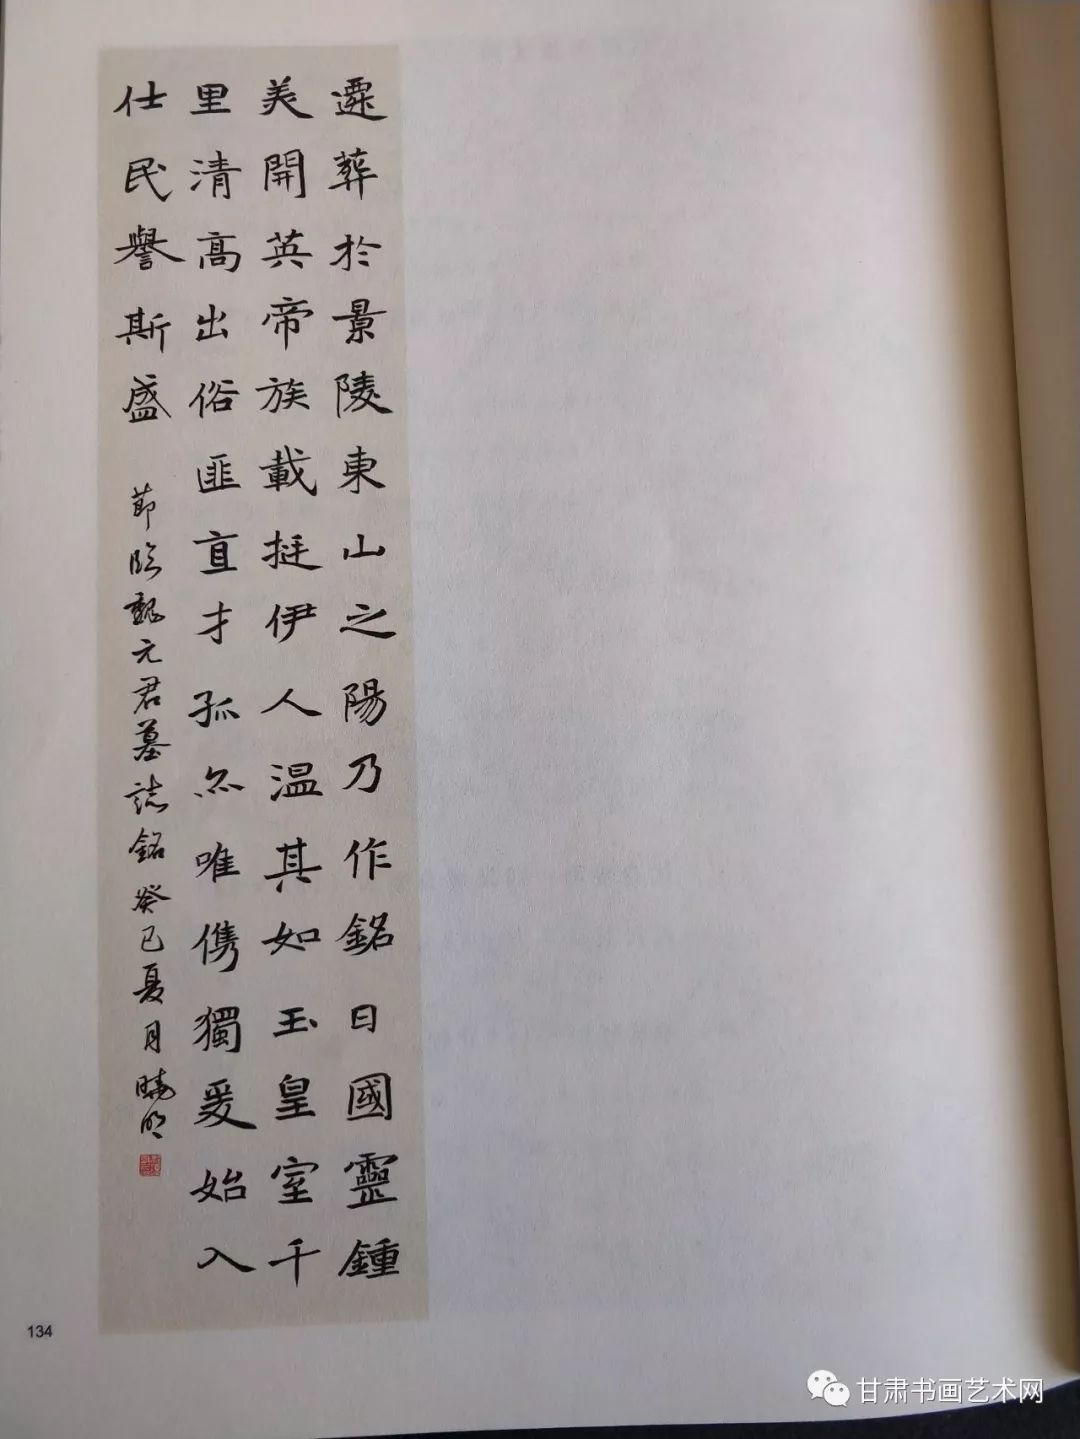 遷葬於景陵東山之陽乃作銘曰國靈鍾
美開英帝族載挺伊人温其如玉皇室千
里清高出俗匪直才孤亦唯儁獨爰始入
仕民譽斯盛
節臨魏元君墓誌銘癸巳夏月曉明
134
甘肃书画艺术网